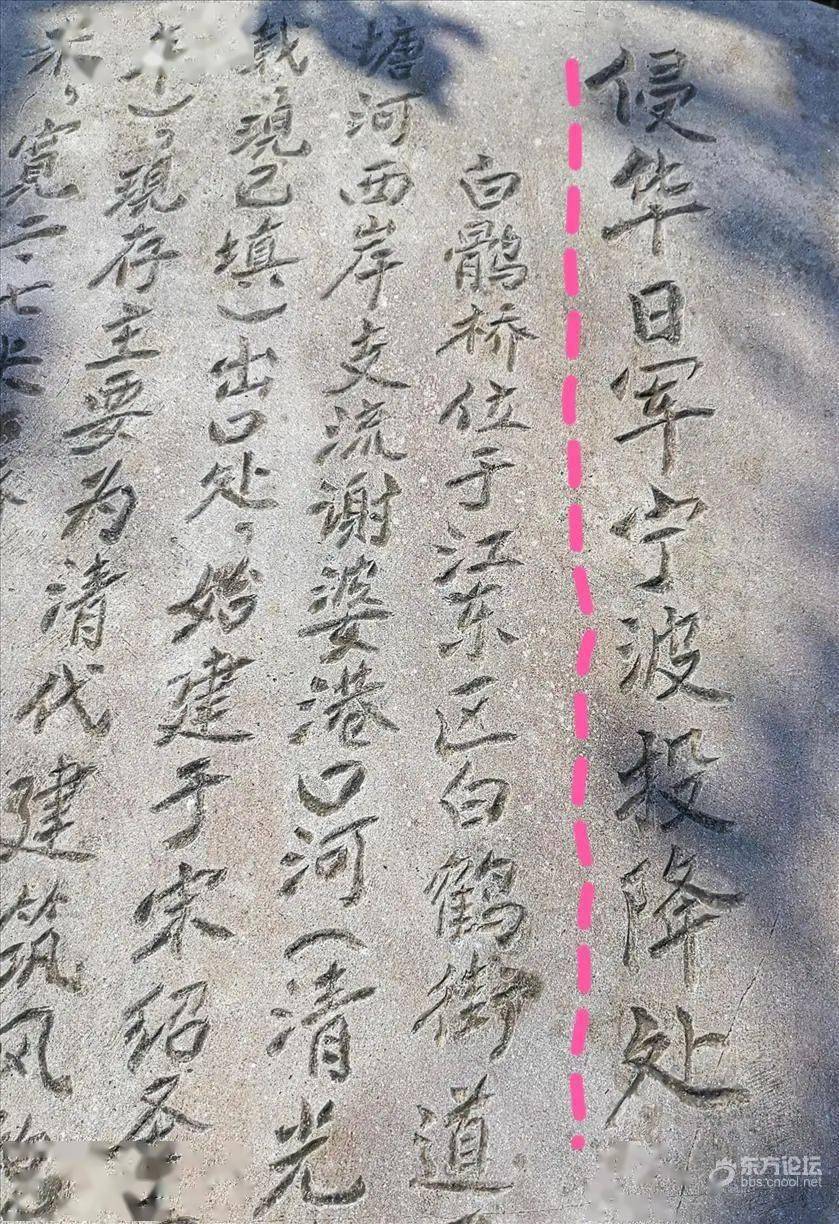 侵华日军宁波投降处
白鹘桥位于江东区白鹤街道
塘河西岸支流谢婆港口河(清光
载,現已填)出口处,始建于宋绍
年),現存主要为清代建筑风
米,寬二·七米
东方论坛
bbs.cnool.net